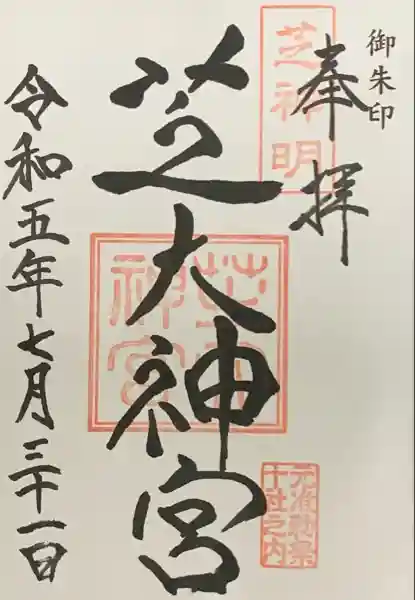 御朱印
奉拝
芝神明
芝大神宮
芝大神宮
元准勅祭
十社之内
令和五年七月三十一日